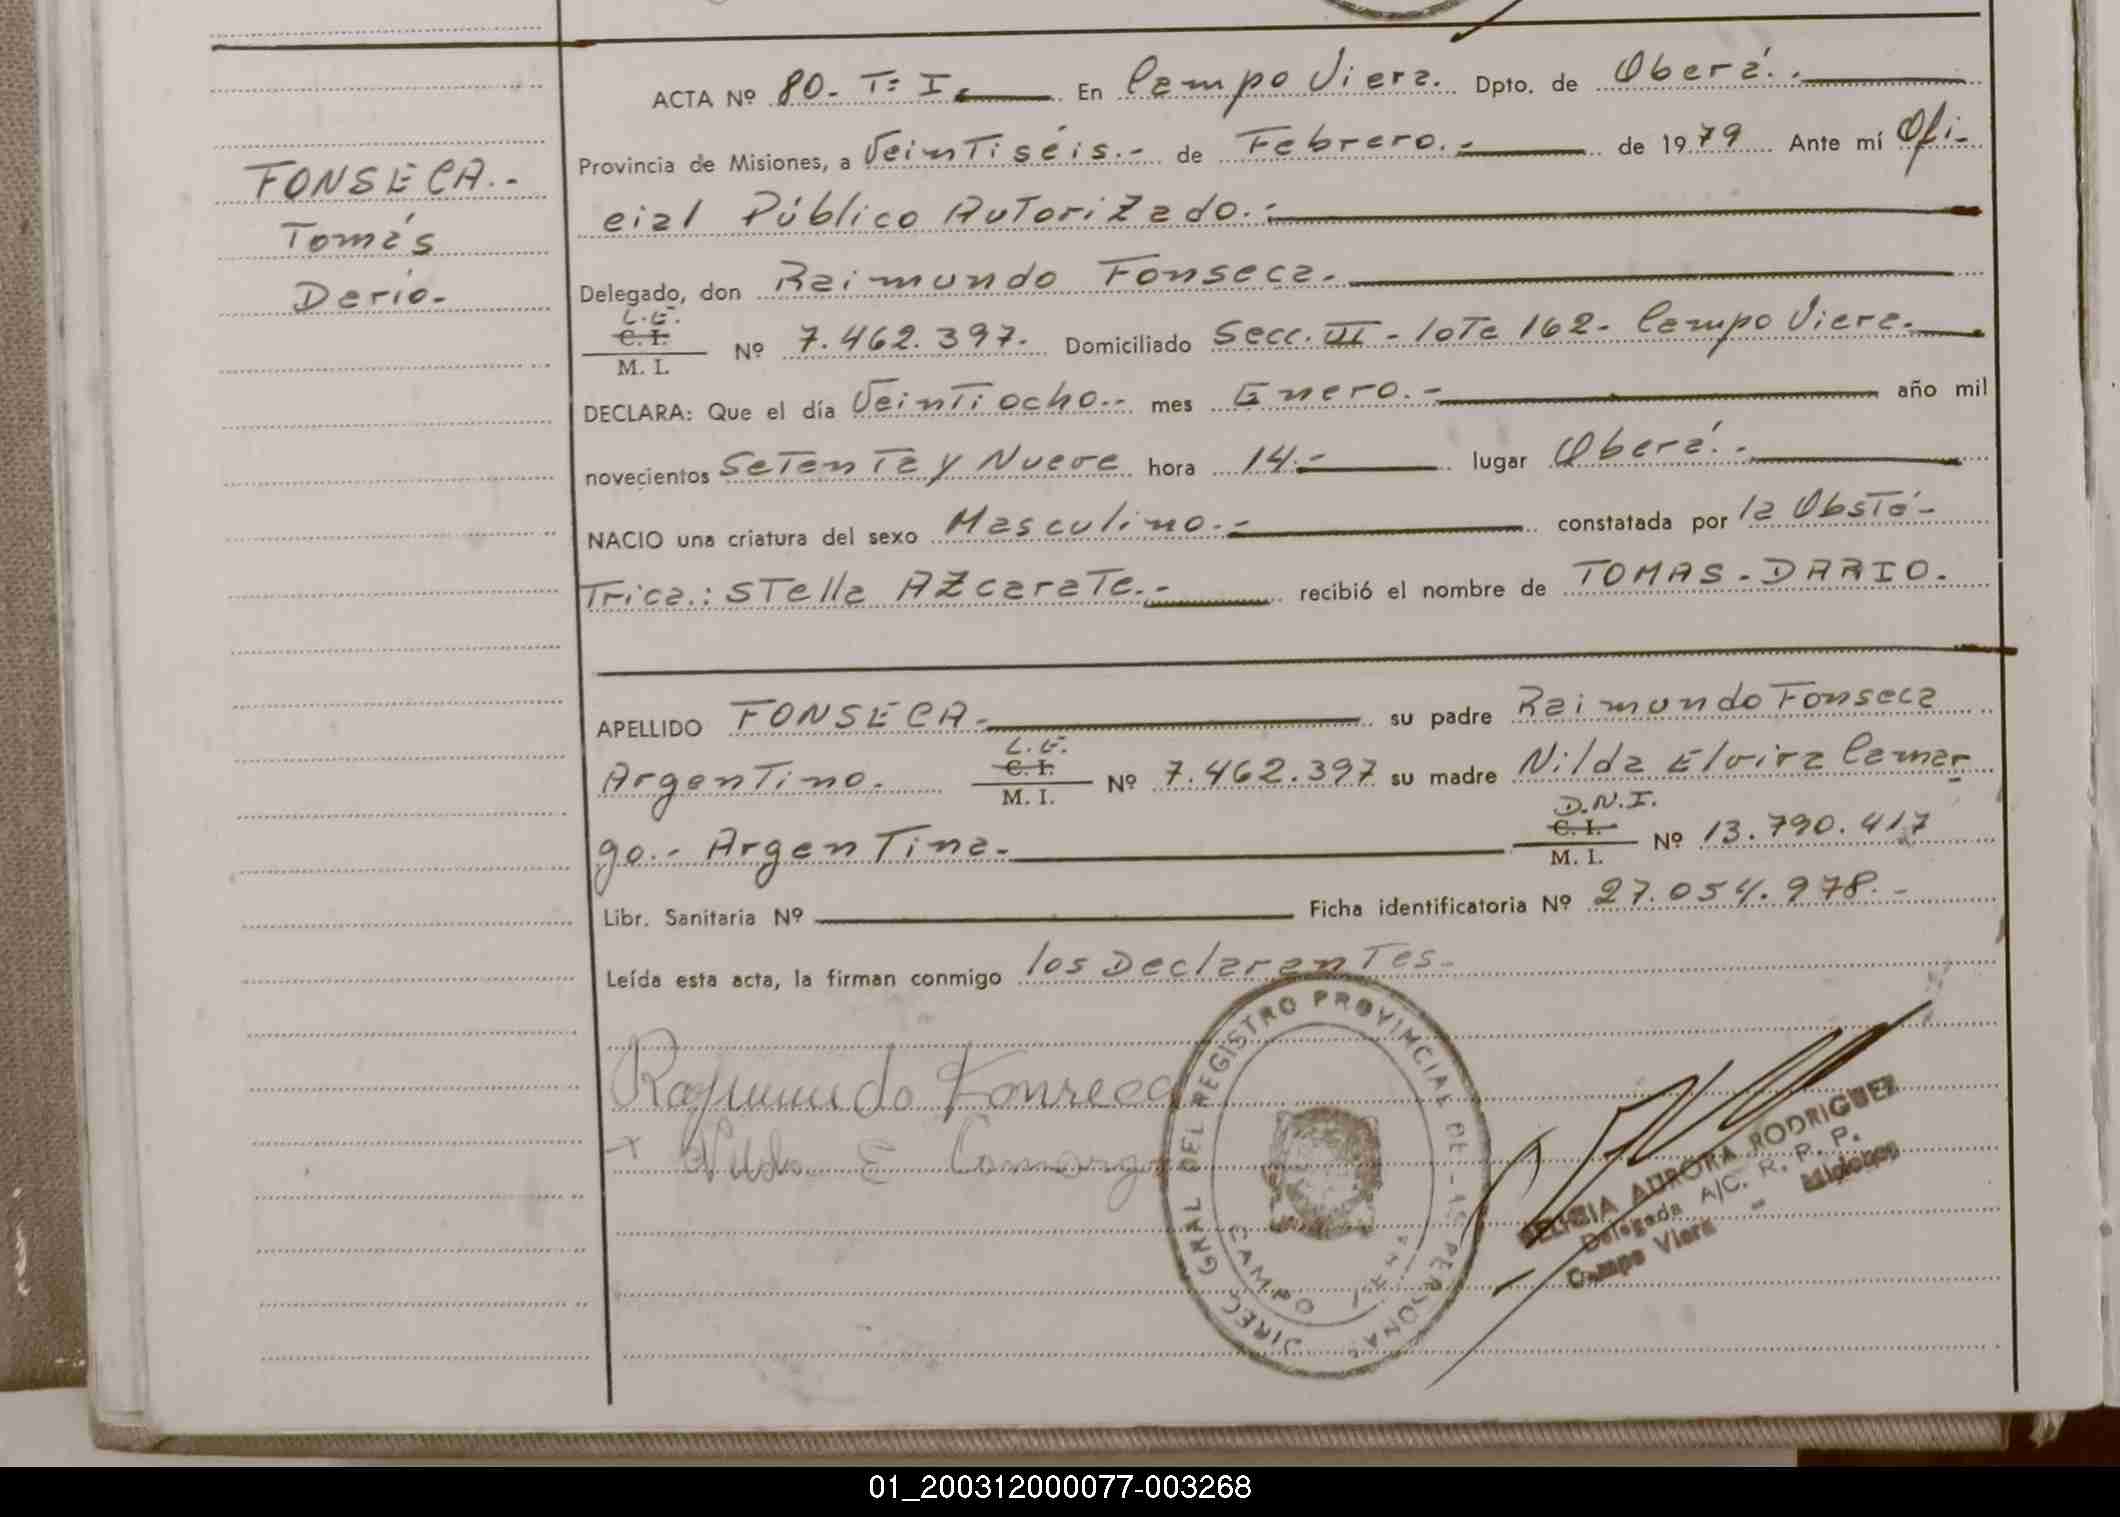 ACTA Nº 80. Tº I. En Campo Viera. Dpto. de Oberá.
Provincia de Misiones, a Veintiséis.- de Febrero.- de 1979 Ante mí Ofi-
FONSECA.-
cial Público Autorizado.-
Tomás
Delegado, don Raimundo Fonseca.
Darío.
L.E.
C. I.
M. I.
Nº 7.462.397. Domiciliado Secc. VI - lote 162 - Campo Viera.
DECLARA: Que el día Veintiocho.- mes Enero.- año mil
novecientos Setenta y Nueve hora 14.- lugar Oberá.-
NACIO una criatura del sexo Masculino.- constatada por la Obsté-
trica.: Stella Azcarate.- recibió el nombre de TOMAS - DARIO.
APELLIDO FONSECA.- su padre Raimundo Fonseca
L.E.
Argentino. C. I.
M. I.
Nº 7.462.397 su madre Nilda Elvira Camar
D.N.I.
go.- Argentina.- C. I.
M. I.
Nº 13.790.417
Libr. Sanitaria Nº Ficha identificatoria Nº 27.054.978.-
Leída esta acta, la firman conmigo los Declarantes.
Raymundo Fonseca
+ Nilda E Camargo
DIREC. GRAL DEL REGISTRO PROVINCIAL DE LAS PERSONAS
CAMPO VIERA
AURORA RODRIGUEZ
Delegada A/C. R. P. P.
Campo Viera - Misiones
01_200312000077-003268